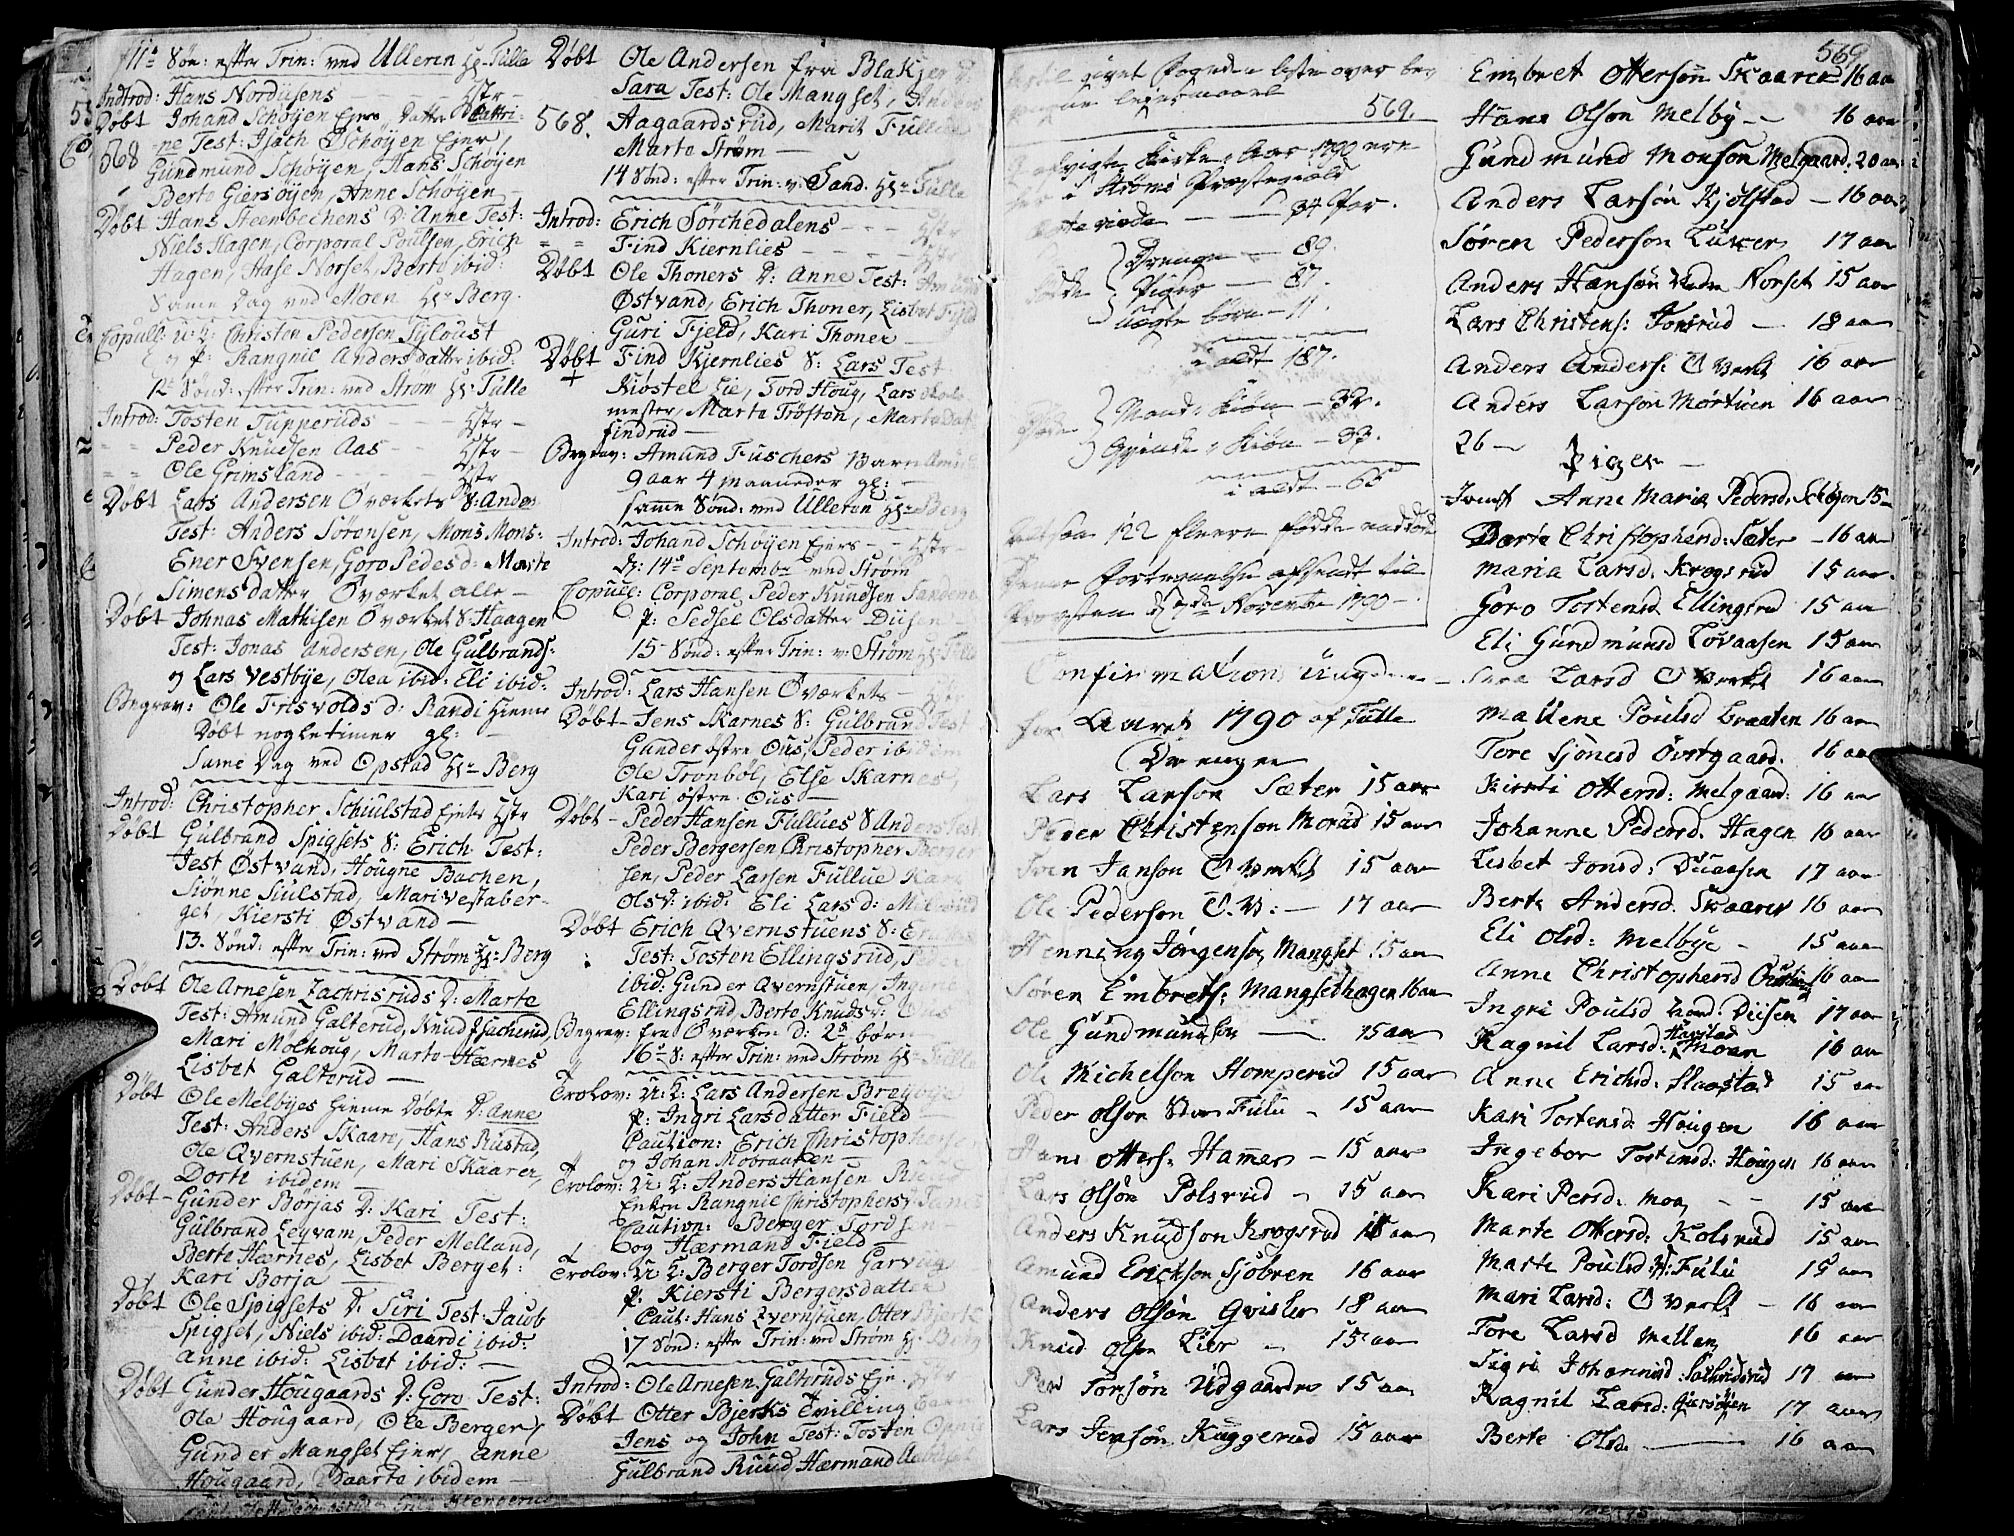 11te Søn: efter Trin: ved Ulleren Hr. Tulle
Indtrod: Hans Nordusens - - - Hstr -
Døbt Johand Schøyen Ejers Datter Cattri-
568 ne Test: Isach Schøyen Ejer,
Gundmund Schøyen, Hans Schøyen
Berte Giersøyen, Anne Schøyen -
Døbt Hans Steenbechens D: Anne Test:
Niels Hagen, Corporal Poulsen, Erich
Hagen, Hase Norset, Berte ibid:
Same Dag ved Moen Hr. Berg.
Copull: U: K: Christen Pedersen
og P: Rangnil Andersdatter ibid:
12te Sønd: efter Trin: ved Strøm Hr. Tulle
Introd: Tosten Tupperuds - - - Hstr -
Peder Knudsen Aas - - Hstr -
Ole Grimsland - - - - Hstr
Døbt Lars Andersen Oværkets S: Anders
Test: Anders Sørensen, Mons Mons-
Ener Svensen, Goro Pedersd: Marte
Simensdatter Oværket alle -
Døbt Johnas Mathisen Oværket S: Haagen
Test: Jonas Andersen, Ole Gulbrands:
og Lars Vestbye, Olea ibid: Eli ibid:
Begrav: Ole Frisvolds d: Randi hieme
Døbt nogle timer gl: -
Same Dag ved Opstad Hr. Berg
Introd: Christopher Schiulstad Ejers Hstr
Døbt Gulbrand Spigsets S: Erich Test:
Jest Østvand, Hougne Bachen,
Siønne Siulstad, Mari Vestaber-
get, Kiersti Østvand -
13. Sønd: efter Trin: ved Strøm Hr. Berg
Døbt Ole Arnesen Zachrisruds D: Marte
Test: Amund Galterud, Knud Sacherud,
Mari Molhoug, Marte Hærnes
Lisbet Galterud -
Døbt Ole Melbyes hieme Døbte D: Anne
Test: Anders Skaare, Hans Rustad,
Ole Qvernstuen, Mari Skaarer,
Dorte ibidem -
Døbt - Gunder Børjas D: Kari Test:
Gulbrand Legvam, Peder Melland,
Berte Hærnes, Lisbet Berget:
Kari Borja -
Døbt Ole Spigsets D: Siri Test: Jacob
Spigset, Niels ibid: Daardi ibid:
Anne ibid: Lisbet ibid: -
Døbt Gunder Hougaards D: Goro Test:
Ole Hougaard, Ole Berger,
Gunder Mangset Ejer, Anne
Hougaard, Daarte ibidem -
Døbt Ole Andersen fra Blakjer D:
Sara Test: Ole Mangset, Anders
568. Aagaardsrud, Marit Fullu
Marte Strøm -
14 Sønd: efter Trin: v: Sand. Hr. Tulle
Introd: Erich Sørchedalens - - - Hstr
Find Kiernlies - - - - Hstr
Døbt Ole Thoners D: Anne Test:
Østvand, Erich Thoner, Lisbet Fjeld
Guri Fjeld, Kari Thoner -
Døbt Find Kjernlies S: Lars Test
Kiøstel Lie, Tord Houg, Lars Skole
mester, Marte Trøften, Marte
findrud -
Begrav: Amund Fuschers Barn
9 aar 4 maaneder gl: -
samme Sønd: ved Ulleren Hr. Berg
Introd: Johand Schøyen Ejers - - Hstr -
D: 14de Septembr ved Strøm
Copull: Corporal Peder Knudsen Sanden
P: Sedsel Olsdatter Diisen
15 Sønd: efter Trin: v: Strøm Hr. Tulle
Introd: Lars Hansen Oværkets - Hstr
Døbt - Jens Skarnes S: Gulbrand Test
Gunder østre Ous, Peder ibidem
Ole Tronbøl, Else Skarnes,
Kari østre Ous -
Døbt - Peder Hansen Fullues S Anders Test
Peder Bergersen Christopher Berger
sen, Peder Larsen Fullue Kari
Olsd: ibid: Eli Larsd:
Døbt Erich Qvernstuens S:
Test: Tosten Ellingsrud,
ibid: Gunder Qvernstuen, Ingeri
Ellingsrud, Berte Knudsd: Ous
Begrav: fra Oværket d: 2de børn
16de S: efter Trin: ved Strøm Hr. Tulle
Trolov: U: K: Lars Andersen
P: Ingri Larsdatter Field
Caution: Erich Christophersen
og Johan Mobraaten -
Trolov: U: K: Anders Hansen
Enken Rangnil Christophersd:
Caution: Berger Tordsen
og Hærmand Field -
Trolov: U: K: Berger Tordsen Garviig
P: Kiersti Bergersdatter
Caut: Hans Qvernstuen, Otter Bjerke
17 Sønd: efter Trin: ved Strøm Hr. Berg
Introd: Ole Arnesen Galteruds Eje
Døbt Otter Bjerks Tvilling
Jens og John Test: Tosten
Gulbrand Ruud Hærmand
569.
1790 ere
i Strøms Præstegield
- - 34 Par.
Drenge - 89.
Piger - 87.
Uægte børn - 11.
i aldt 187.
Mand: Kiøn - 32.
Qvinde: Kiøn - 33.
i aldt - 65
Altsaa 122 fleere fødde end døde
Denne Fortegnelse afsendt til
Provsten d 7de Novembr 1790 -
Confirmations Ungdom
for Aaret 1790 af Tulle
Drenge
Lars Larson Sæter 15 aar
Peder Christenson Morud 15 aar
Iven Janson O Verkt 15 aar
Ole Pederson O.V: - 17 aar
Henning Jørgenson Mangset 15 aar
Søren Embrets: Mangsethagen 16 aar
Ole Gundmundson - 15 aar
Ole Michelson Homperud 15 aar
Peder Olson Stor Fulu - 15 aar
Hans Otters: Hammer - 15 aar
Lars Olsøn Polsrud - 15 aar
Anders Knudson Krogsrud 15 aar
Amund Erickson Sjøbren 16 aar
Anders Olsøn Gvisler 18 aar
Knud Olson Lier - 15 aar
Per Torsøn Udgaarde 15 aar
Lars Jensøn Kuggerud 15 aar
569
Embret Ottersøn Skaarer 16 aar
Hans Olson Melby - - 16 aar
Gundmund Monson Melgaard. 20 aar
Anders Larsøn Kjølstad - 16 aar
Søren Pederson Luker 17 aar
Anders Hansøn Nedre Norset 15 aar
Lars Christens: Tonsrud - 18 aar
Anders Anders: O Verkt 16 aar
Anders Larson Mørtuen 16 aar
26 -
Piger -
Jomf Anne Maria Pedersd. Schøyen 15 -
Dorte Christophersd: Sæter - 16 aar
Maria Larsd: Krogsrud 15 aar.
Goro Tostensd. Ellingsrud 15 aar
Eli Gundmunsd Lovaasen 15 aar
Sara Larsd O Verkt 16 aar
Mallene Poulsd Braaten 16 aar
Tore Sjønesd Øvstgaard. 16 aar
Kiersti Ottersd: Melgaard: 16 aar
Johanne Pedersd. Hagen 16 aar
Lisbet Jonsd: Duaasen 17 aar
Berte Andersd. Skaarer 16 aar
Eli Olsd: Melbye - 15 aar
Anne Christophersd 16 aar
Ingri Poulsd Diisen 17 aar
Ragnil Larsd: Harstad Moen 16 aar
Anne Ericksd: Slaastad 15 aar
Kari Tostensd: Hougen 16 aar
Ingebor Tostensd: Hougen 16 aar
Kari Persd: Moe - - 15 aar
Marte Ottersd: Kolsrud 15 aar
Marte Poulsd N: Fulu 15 aar
Mari Larsd: O Verkt - 16 aar
Tore Larsd Mellem 16 aar
Sigri Johannesd: 17 aar
Ragnil Larsd: Giersøyen 17 aar
Berte Olsd. - 16 aar